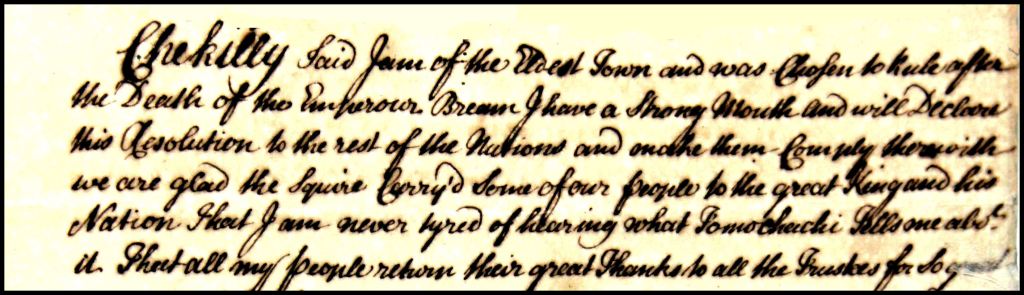 Chekilly Said I am of the Eldest Town and was Chosen to Rule after
the Death of the Emperour Bream I have a Strong Mouth and will Declare
this Resolution to the rest of the Nations and make them Comply therewith
we are glad the Squire Carry'd Some of our people to the great King and his
Nation That I am never tyred of hearing what Tomochachi Tells me abt.
it That all my people return their great Thanks to all the Trustees for So